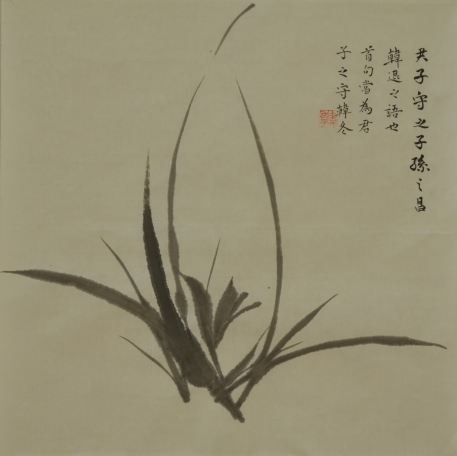 君子守之子孫之昌
韓退之語也
首句當為君
子之守韓冬